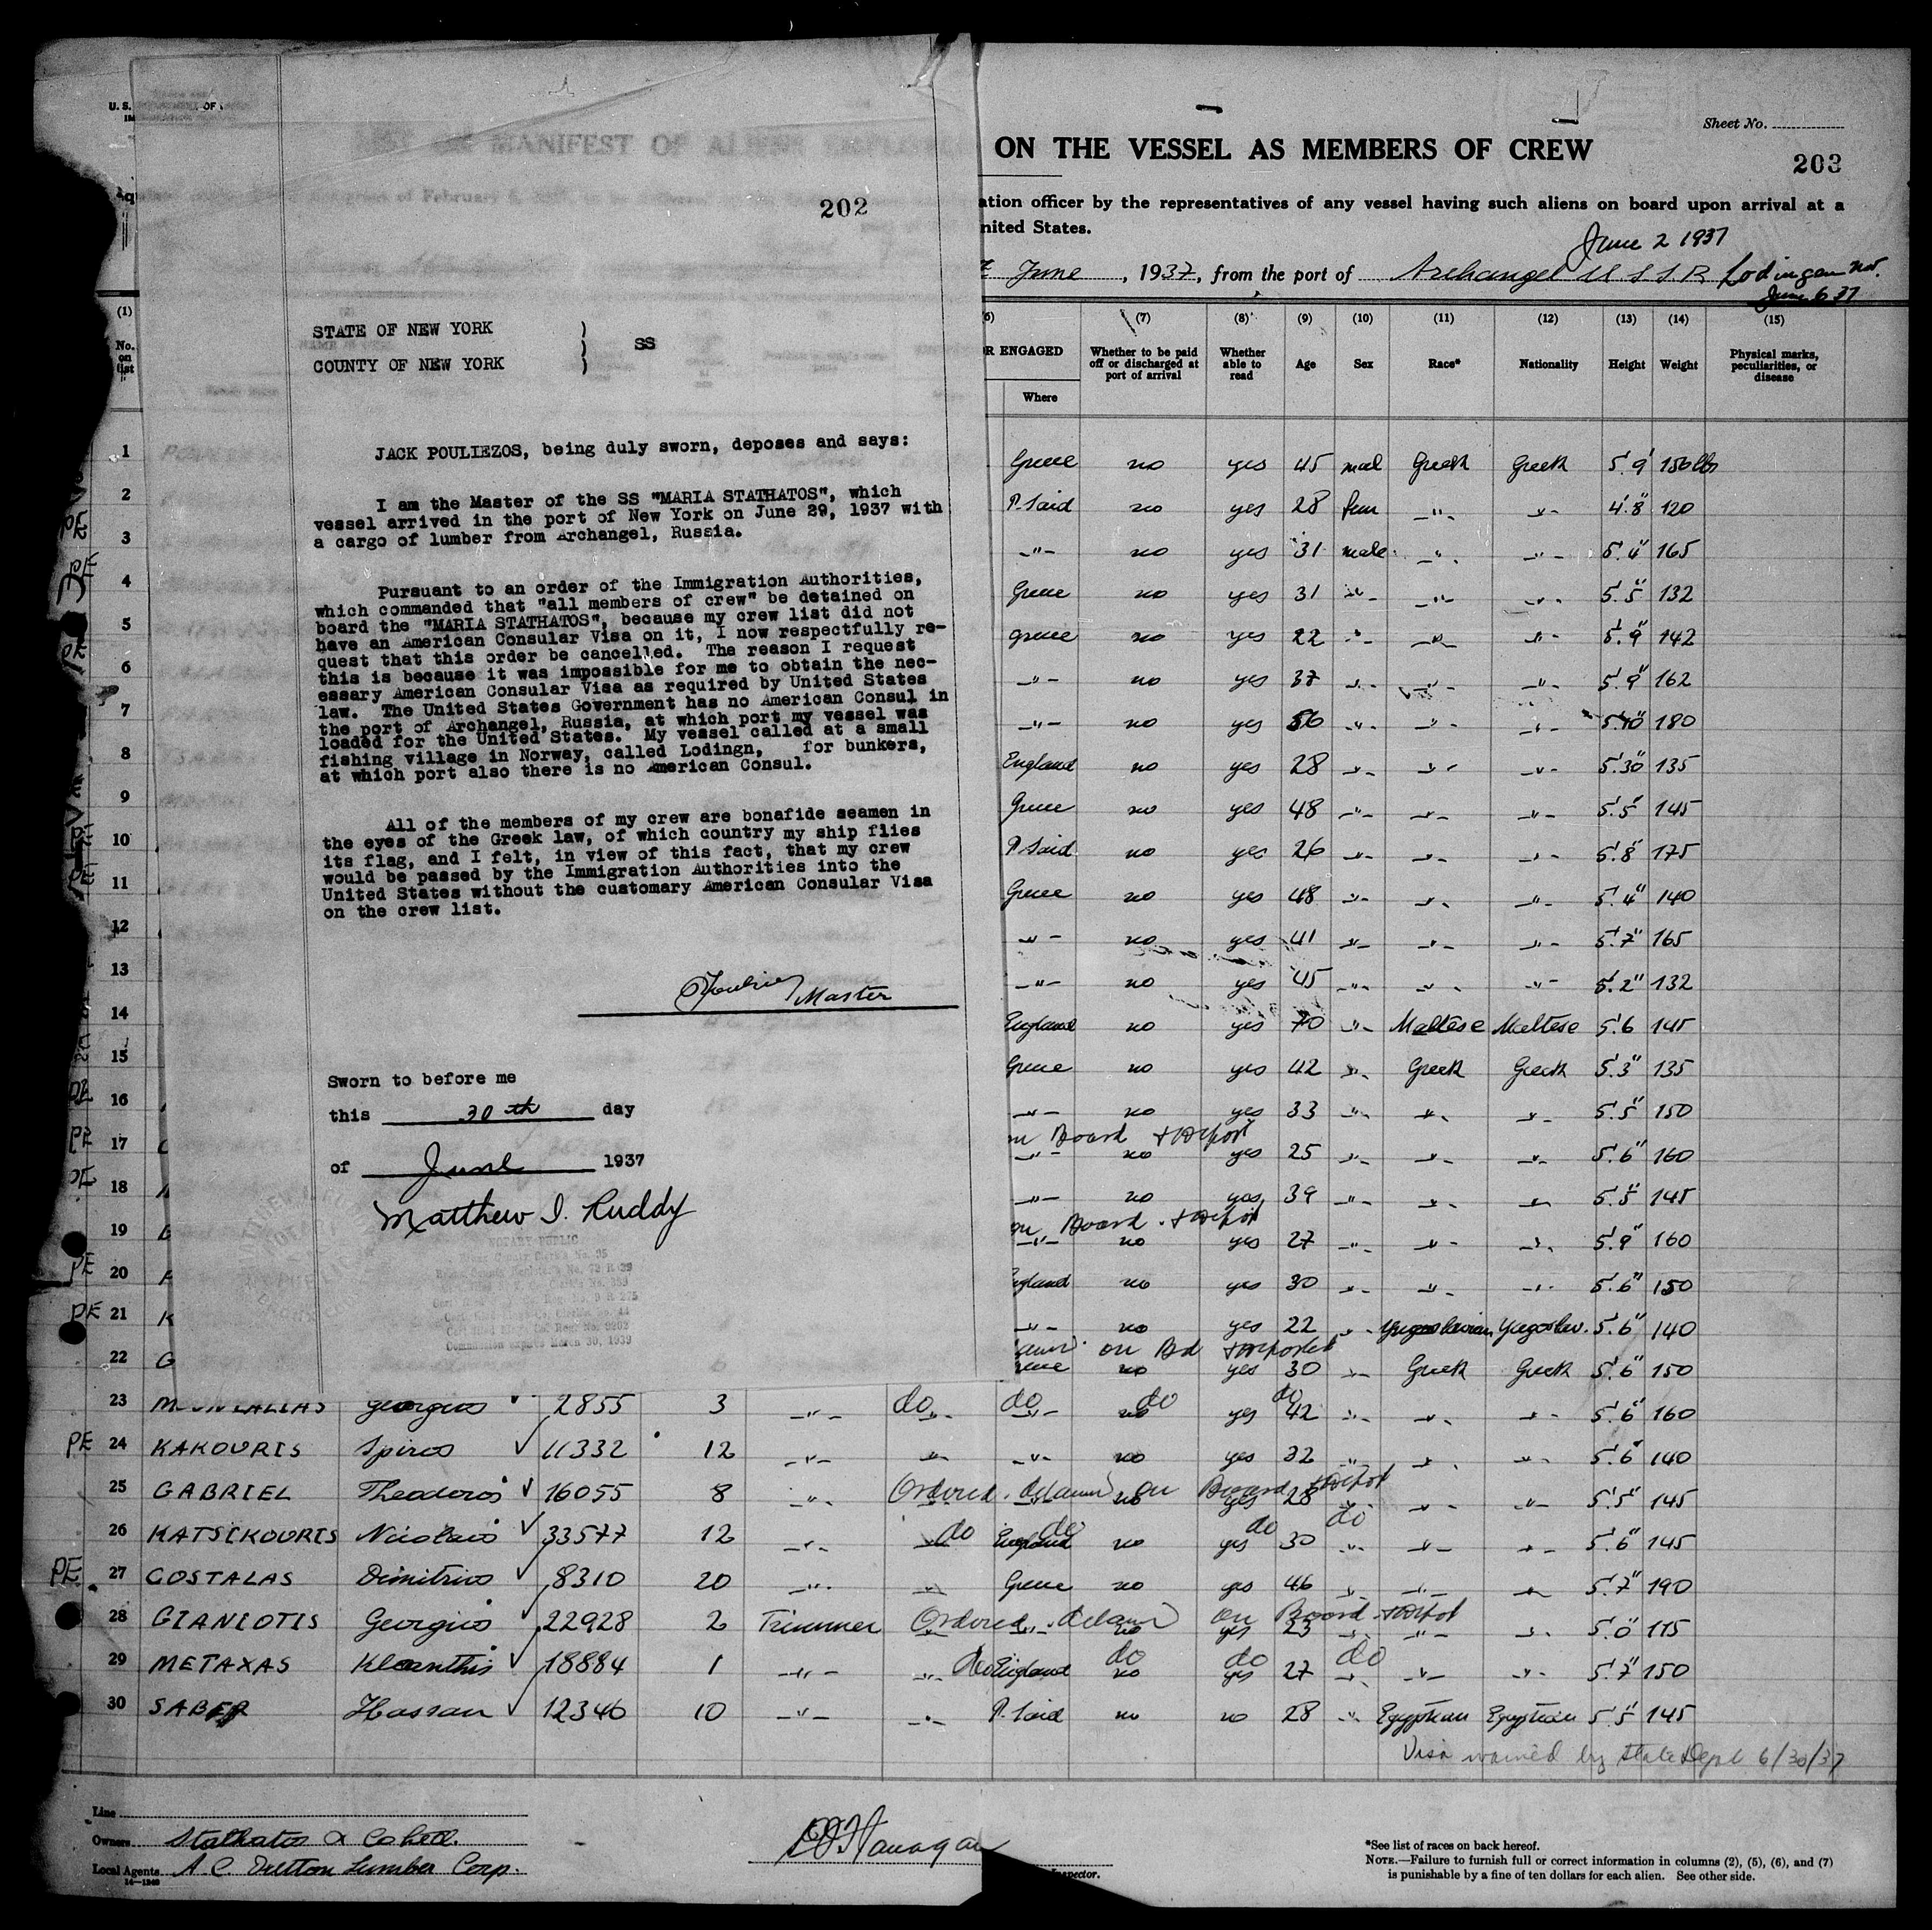 U. S.
OF
202
STATE OF NEW YORK
COUNTY OF NEW YORK
SS
JACK POULIEZOS, being duly sworn, deposes and says:
I am the Master of the SS "MARIA STATHATOS", which
vessel arrived in the port of New York on June 29, 1937 with
a cargo of lumber from Archangel, Russia.
Pursuant to an order of the Immigration Authorities,
which commanded that "all members of crew" be detained on
board the "MARIA STATHATOS", because my crew list did not
have an American Consular Visa on it, I now respectfully re-
quest that this order be cancelled. The reason I request
this is because it was impossible for me to obtain the nec-
essary American Consular Visa as required by United States
law. The United States Government has no American Consul in
the port of Archangel, Russia, at which port my vessel was
loaded for the United States. My vessel called at a small
fishing village in Norway, called Lodingn, for bunkers,
at which port also there is no American Consul.
All of the members of my crew are bonafide seamen in
the eyes of the Greek law, of which country my ship flies
its flag, and I felt, in view of this fact, that my crew
would be passed by the Immigration Authorities into the
United States without the customary American Consular Visa
on the crew list.
Master
Sworn to before me
this 30th day
of June 1937
Matthew I. Ruddy
NOTARY PUBLIC
Commission expires March 30, 1939
Sheet No.
ON THE VESSEL AS MEMBERS OF CREW
203
ation officer by the representatives of any vessel having such aliens on board upon arrival at a
nited States.
June 2 1937
June , 1937, from the port of Archangel U S S R Lodingen nor.
June 6 37
(1) (6) (7) (8) (9) (10) (11) (12) (13) (14) (15)
No. on list
R ENGAGED Where
Whether to be paid off or discharged at port of arrival
Whether able to read
Age Sex Race* Nationality Height Weight
Physical marks, peculiarities, or disease
1 Greece no yes 45 mal Greek Greek 5'.9" 156 lbs
2 P. Said no yes 28 fem -"- -"- 4'.8" 120
3 -"- no yes 31 male -"- -"- 5'.4" 165
4 Greece no yes 31 -"- -"- -"- 5'.5" 132
5 greece no yes 22 -"- -"- -"- 5'.9" 142
6 -"- no yes 37 -"- -"- -"- 5'.9" 162
7 -"- no yes 56 -"- -"- -"- 5'10" 180
8 England no yes 28 -"- -"- -"- 5'30" 135
9 Greece no yes 48 -"- -"- -"- 5'.5" 145
10 P. Said no yes 26 -"- -"- -"- 5'.8" 175
11 Greece no yes 48 -"- -"- -"- 5'.4" 140
12 -"- no yes 41 -"- -"- -"- 5'.7" 165
13 -"- no yes 45 -"- -"- -"- 5'.2" 132
14 England no yes 70 -"- Maltese Maltese 5'.6 145
15 Greece no yes 42 -"- Greek Greek 5'.3" 135
16 -"- no yes 33 -"- -"- -"- 5'.5" 150
on Board + Deport
PE 17 -"- no yes 25 -"- -"- -"- 5'.6" 160
PE 18 -"- no yes 39 -"- -"- -"- 5'.5" 145
on Board + Deport
19 -"- no yes 27 -"- -"- -"- 5'.9" 160
PE 20 ngland no yes 30 -"- -"- -"- 5'.6" 150
PE 21 K -"- no yes 22 -"- Yugoslavian Yugoslav. 5'.6" 140
on Bd + deported
22 G eece no yes 30 -"- Greek Greek 5'.6" 150
do do do do
23 Georgios 2855 3 -"- -"- -"- no yes 42 -"- -"- -"- 5'.6" 160
PE 24 KAKOURIS Spiros 11332 12 -"- -"- -"- no yes 32 -"- -"- -"- 5'.6" 140
Ordered detained on Board + Deport
25 GABRIEL Theodoros 16055 8 -"- -"- -"- no yes 28 -"- -"- -"- 5'.5" 145
do do do do
26 KATSIKOURIS Nicolaos 33577 12 -"- -"- England no yes 30 -"- -"- -"- 5'.6" 145
PE 27 COSTALAS Dimitrios 8310 20 -"- -"- Greece no yes 46 -"- -"- -"- 5'.7" 190
Ordered detained on Board + Deport
28 GIANIOTIS Georgios 22928 2 Trimmer -"- -"- no yes 23 -"- -"- -"- 5'.0" 115
do do do do
29 METAXAS Kleanthis 18884 1 -"- -"- England no yes 27 -"- -"- -"- 5'.7" 150
30 SABER Hassan 12346 10 -"- -"- P. Said no no 28 -"- Egyptian Egyptian 5'.5" 145
Visa waived by State Dept. 6/30/37
Line
Owners Stathatos & Co
Local Agents A. C. Dutton Lumber Corp.
14—1240
Inspector.
*See list of races on back hereof.
NOTE.—Failure to furnish full or correct information in columns (2), (5), (6), and (7)
is punishable by a fine of ten dollars for each alien. See other side.